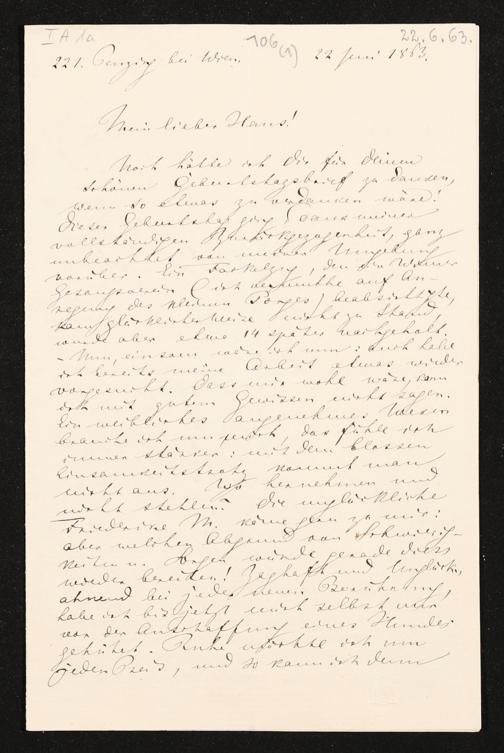 I A 1a
106 (1)
22.6.63.
221. Penzing bei Wien. 22 Juni 1863.
Mein lieber Hans!
Noch hätte ich Dir für Deinen
schönen Geburtstagsbrief zu danken,
wenn so etwas zu verdanken wäre!
Dieser Geburtstag ging, dank meiner
vollständigen Zurückgezogenheit, ganz
unbeachtet von meiner Umgebung
vorüber. Ein Fackelzug, den der Wiener
Gesangverein (ich vermuthe auf An-
regung des kleinen Porges) beabsichtigte,
kam glücklicherweise nicht zu Stand,
wurde aber etwa 14 später nachgeholt.
- Nun, einsam wäre ich nun: auch habe
ich bereits meine Arbeit etwas wieder
vorgesucht. Dass mir wohl wäre, kann
ich mit gutem Gewissen nicht sagen.
Ein weibliches angenehmes Wesen
brauche ich nun, das fühle ich
immer stärker: mit dem blossen
Einsamkeitstrotz kommt man
nicht aus. Wo hernehmen und
nicht stehlen? Die unglückliche
Friederike M. käme gern zu mir:
aber welchen Abgrund von Schwierig-
keiten u. Sorgen würde gerade diess
wieder bereiten! Zaghaft und Unglück
ahnend bei jeder neuen Berührung,
habe ich bis jetzt mich selbst nur
vor der Anschaffung eines Hundes
gehütet. Ruhe möchte ich um
jeden Preis, und so kann ich denn